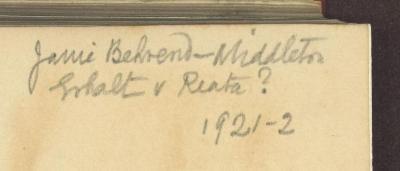 Janie Behrend-Middleton
Erhalt v Reata?
1921-2